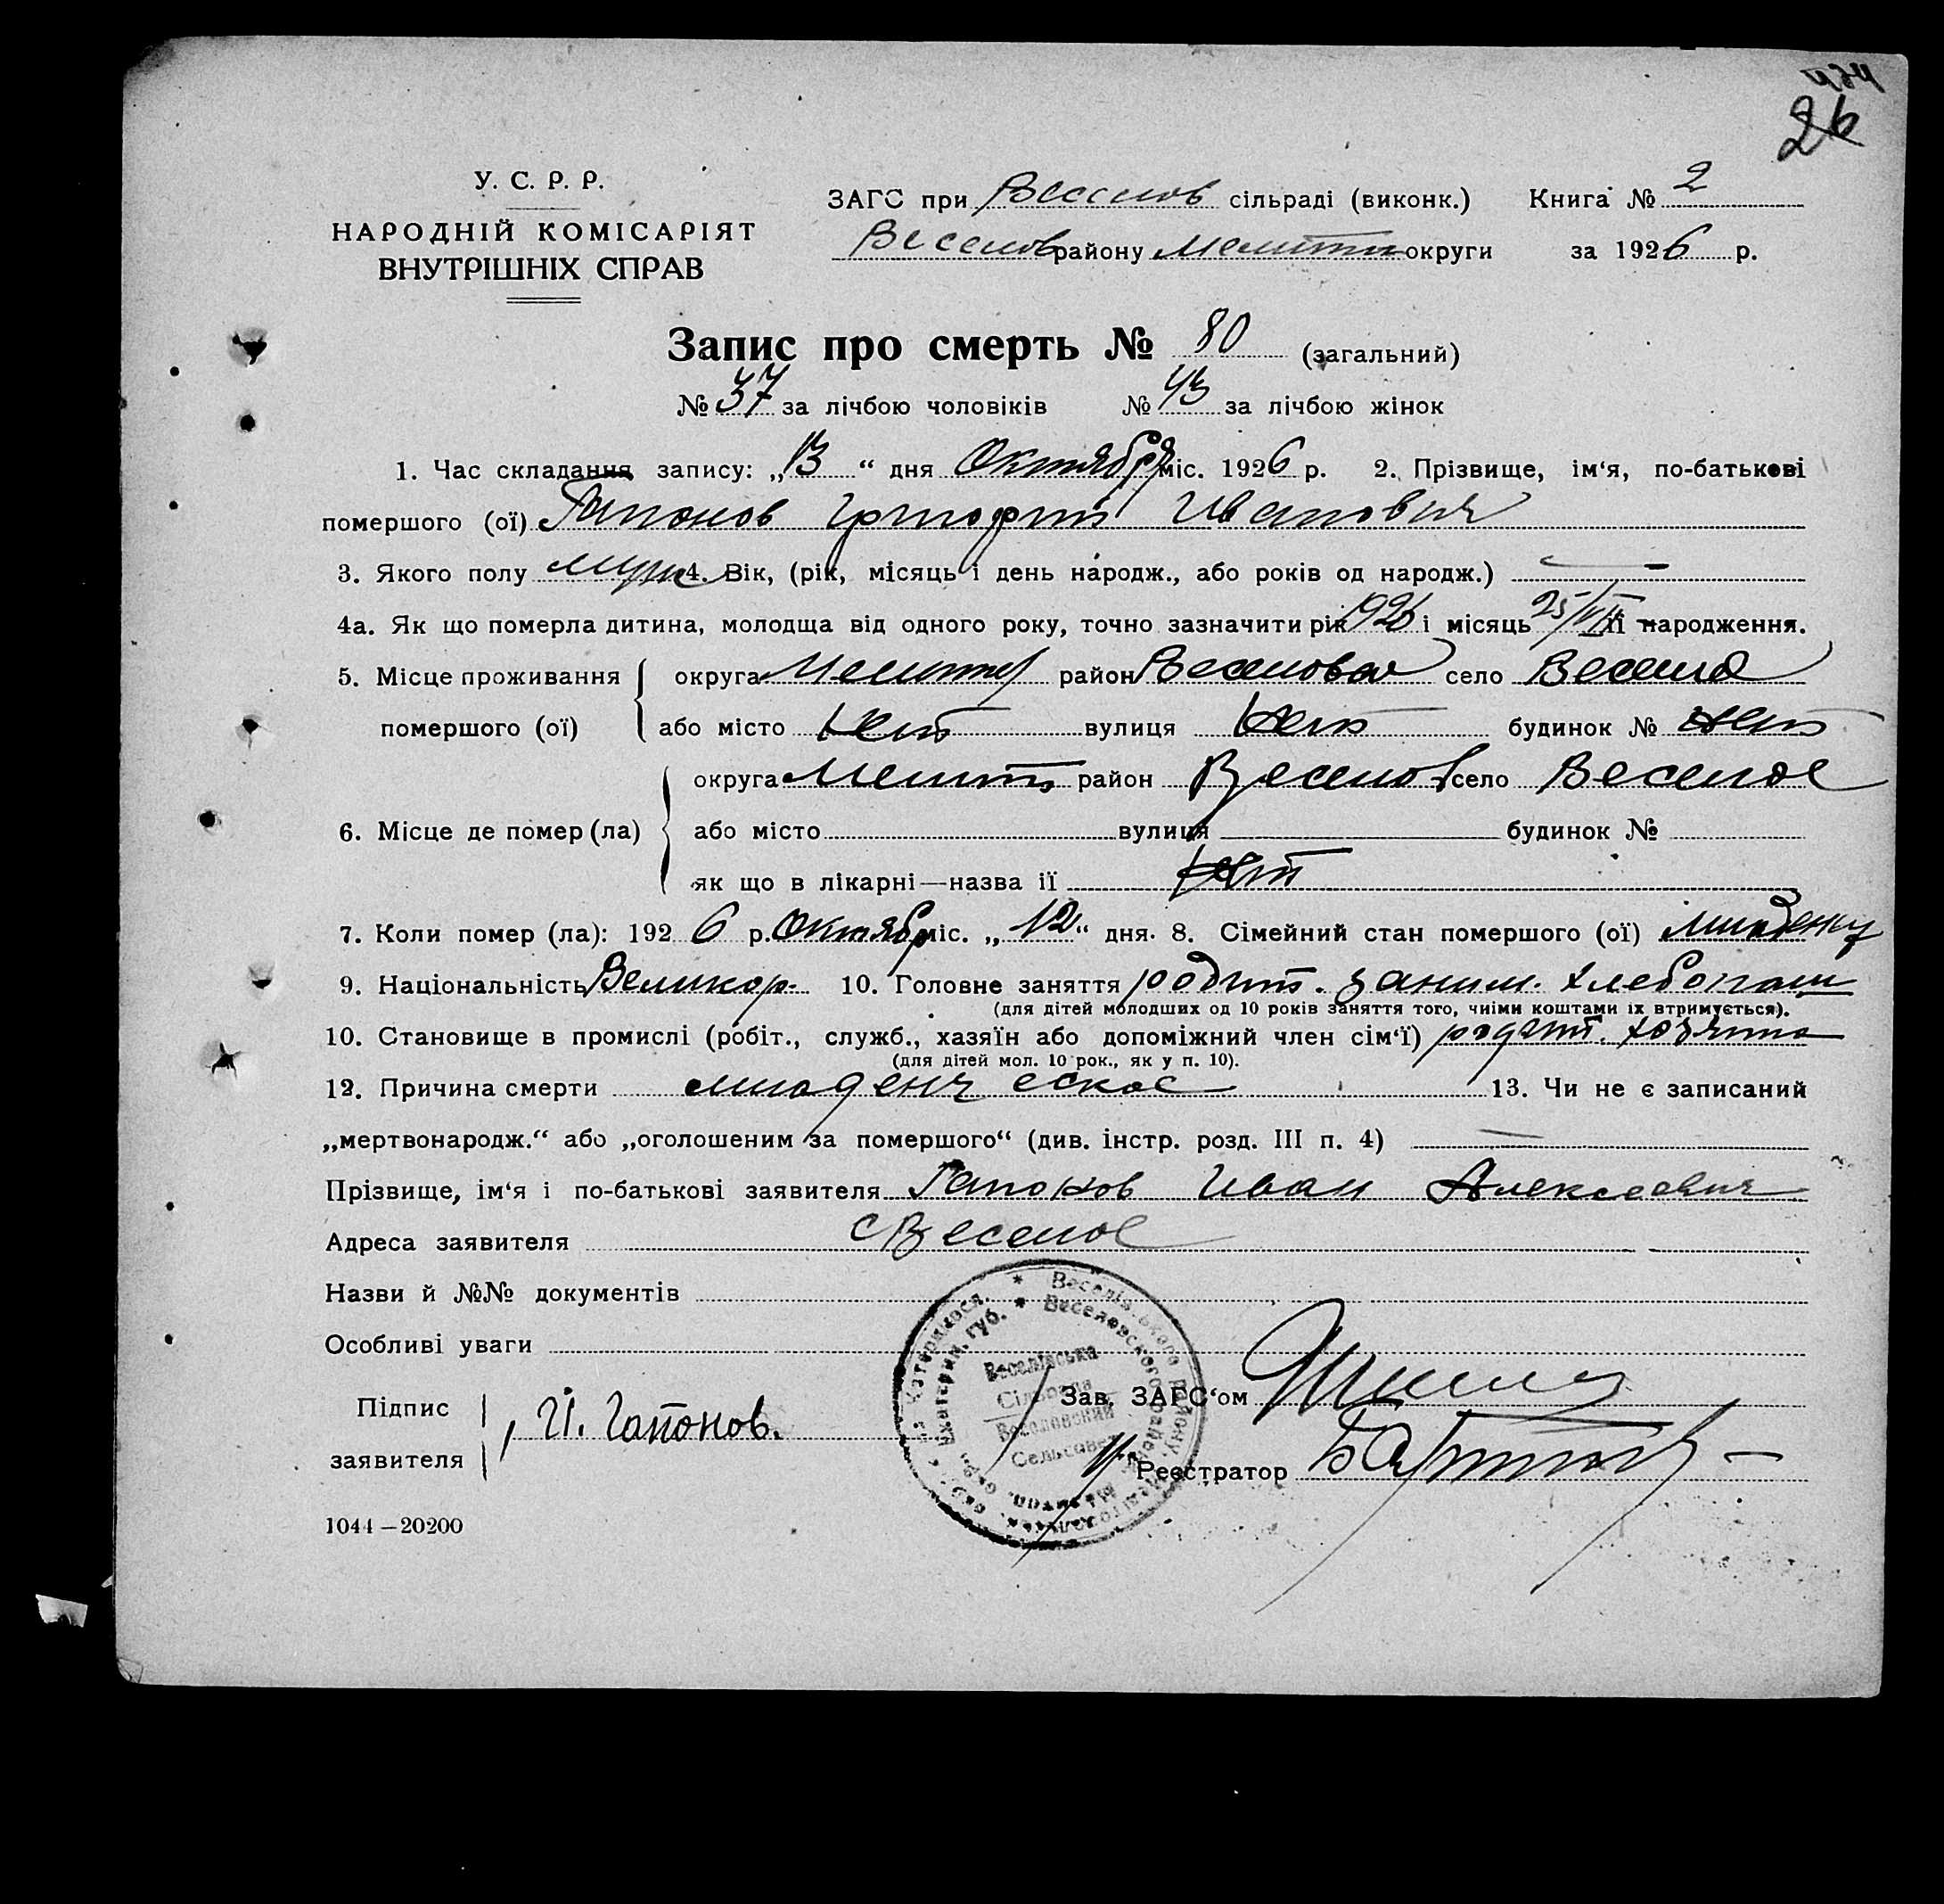 26
У. С. Р. Р.
НАРОДНІЙ КОМІСАРІЯТ
ВНУТРІШНІХ СПРАВ
ЗАГС при Веселов сільраді (виконк.) Книга № 2
Веселов району Мелитп округи за 1926 р.
Запис про смерть № 80 (загальний)
№ 37 за лічбою чоловіків № 43 за лічбою жінок
1. Час складання запису: „13“ дня Октября міс. 1926 р. 2. Прізвище, ім‘я, по-батькові
помершого (ої) Гапонов Григорий Иванович
3. Якого полу муж 4. Вік, (рік, місяць і день народж., або років од народж.) —
4а. Як що померла дитина, молодща від одного року, точно зазначити рік 1926 і місяць її народження.
5. Місце проживання округа Мелитоп район Веселовск село Веселое
помершого (ої) або місто Нет вулиця Нет будинок № нет
округа Мелитп район Веселов село Веселое
6. Місце де помер (ла) або місто вулиця будинок №
як що в лікарні—назва її Нет
7. Коли помер (ла): 1926 р. Октябр міс. „12“ дня. 8. Сімейний стан помершого (ої) младенец
9. Національність Великор. 10. Головне заняття родит. заним. хлебопаш
(для дітей молодших од 10 років заняття того, чиїми коштами їх втримується).
10. Становище в промислі (робіт., служб., хазяїн або допоміжний член сім‘ї) родит. хозяин
(для дітей мол. 10 рок., як у п. 10).
12. Причина смерти младенческое 13. Чи не є записаний
„мертвонародж.“ або „оголошеним за помершого“ (див. інстр. розд. III п. 4) —
Прізвище, ім‘я і по-батькові заявителя Гапонов Иван Алексеевич
Адреса заявителя с Веселое
Назви й №№ документів
Особливі уваги
Веселівська
Сільрада
Веселовский
Сельсовет
Зав. ЗАГС‘ом
Підпис
заявителя И. Гапонов.
Реєстратор
1044—20200